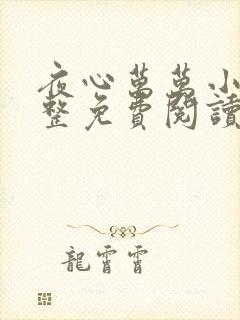 夜心萬萬小
整免費閱讀
龍霄霄